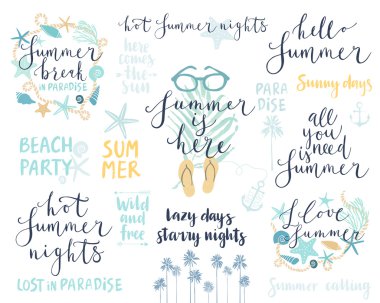 hot Summer nights
Summer
break
IN PARADISE
here
comes
the
sun
hello
Summer
Sunny days
PARA
DISE
Summer
is
here
all
you
is need
Summer
BEACH
PARTY
SUM
MER
hot
Summer
nights
Wild
and
free
lazy days
starry nights
I love
Summer
LOST IN PARADISE
Summer calling